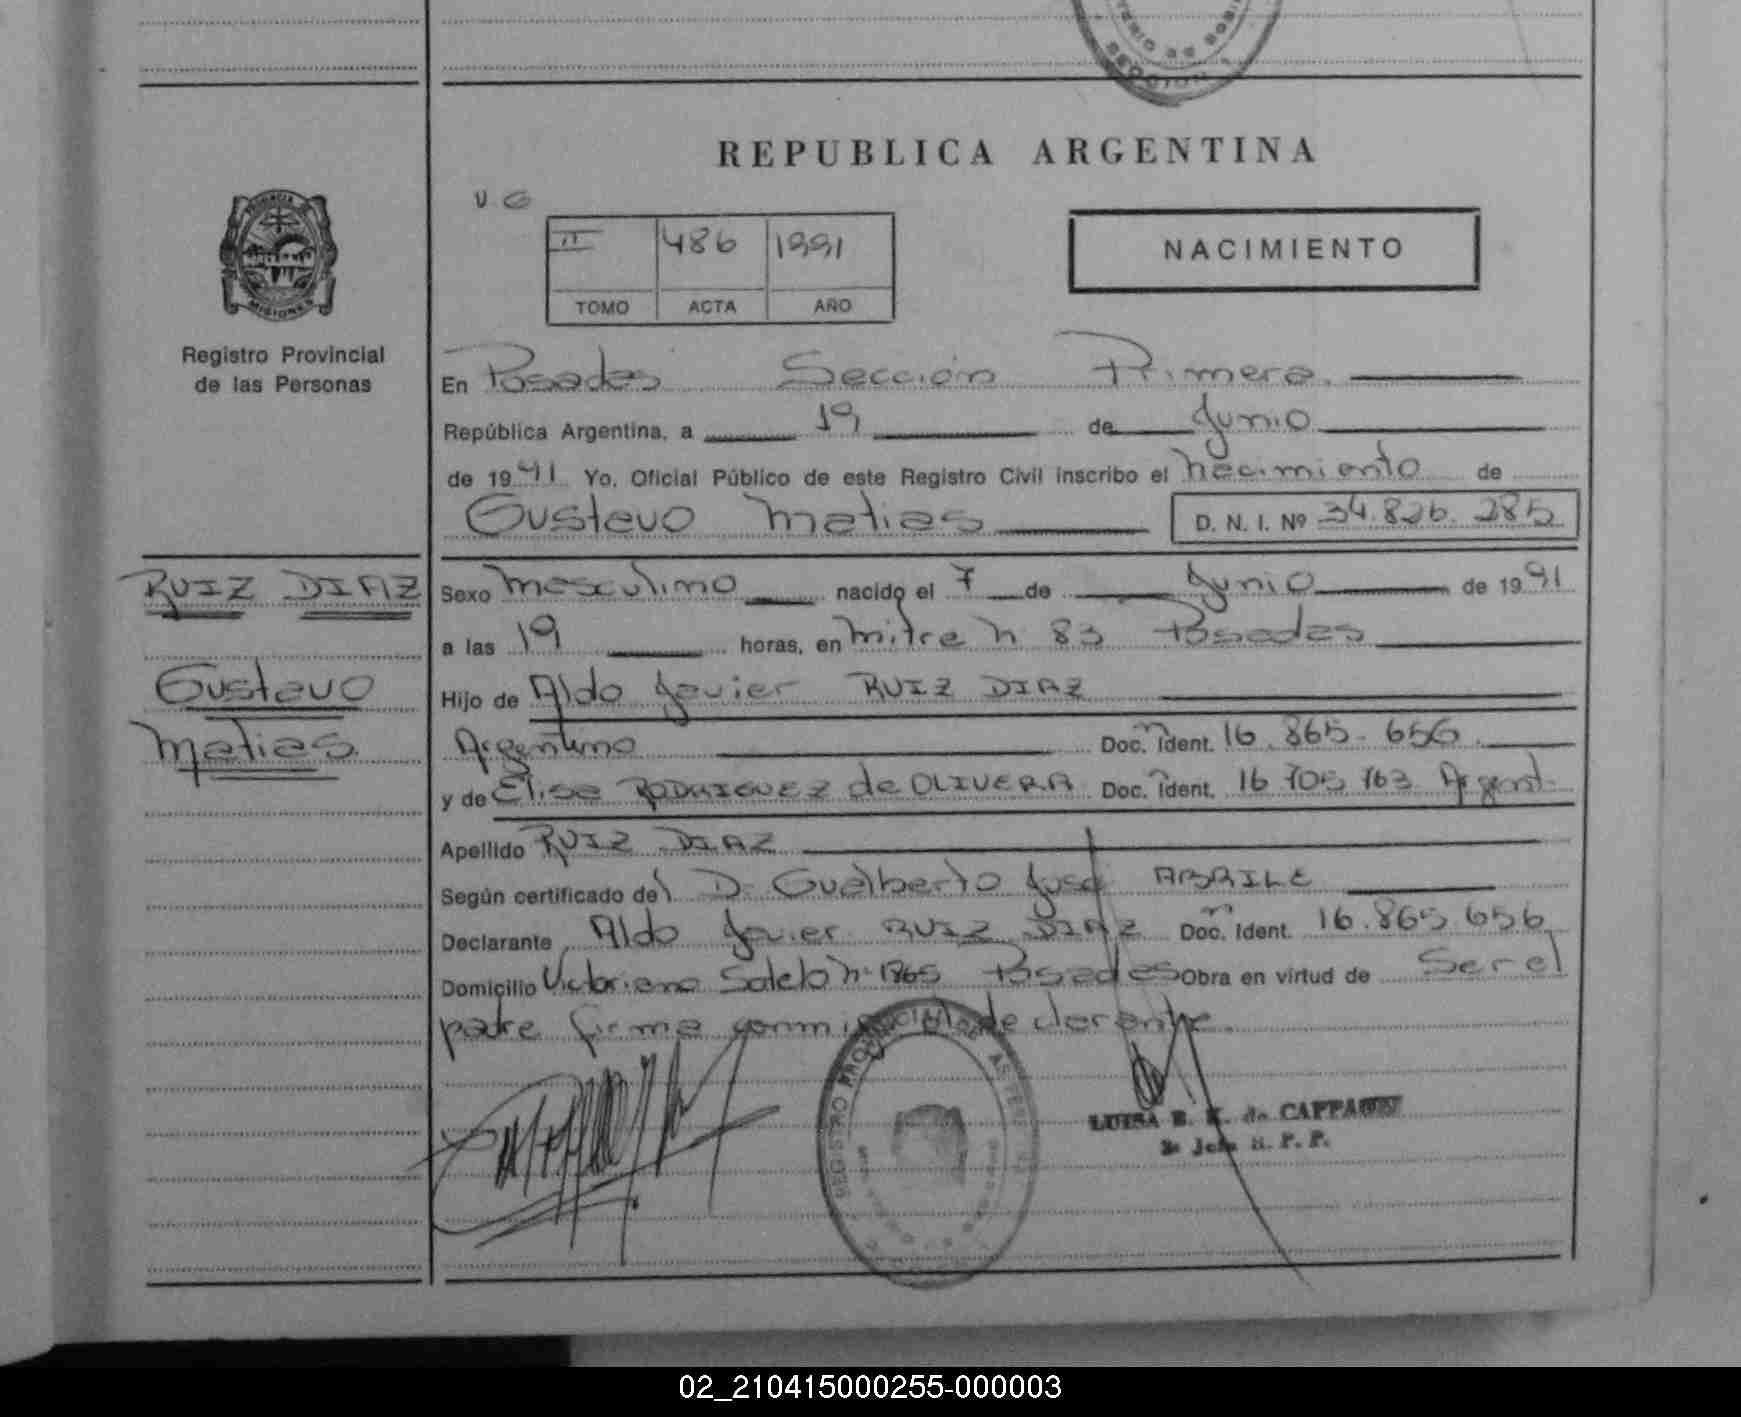 REPUBLICA ARGENTINA
PROVINCIA
MISIONES
Registro Provincial
de las Personas
II 486 1991
TOMO ACTA AÑO
NACIMIENTO
En Posadas Sección Primera.
República Argentina, a 19 de Junio
de 1991 Yo, Oficial Público de este Registro Civil inscribo el nacimiento de
Gustavo Matias D. N. I. Nº 34.826.285
RUIZ DIAZ
Gustavo
Matias
Sexo masculino nacido el 7 de Junio de 1991
a las 19 horas, en Mitre n 83 Posadas
Hijo de Aldo Javier RUIZ DIAZ
Argentino Doc. Ident. 16.865.656
y de Elisa RODRIGUEZ de OLIVERA Doc. Ident. 16 705 763 Argent.
Apellido RUIZ DIAZ
Según certificado del D. Gualberto José ABRILE
Declarante Aldo Javier RUIZ DIAZ Doc. Ident. 16.865.656
Domicilio Victoriano Sotelo nº 1865 Posades Obra en virtud de Ser el
padre firma conmigo el declarante.
REGISTRO PROVINCIAL DE
LUISA B. K. de
2º Jefe R. P. P.
02_210415000255-000003